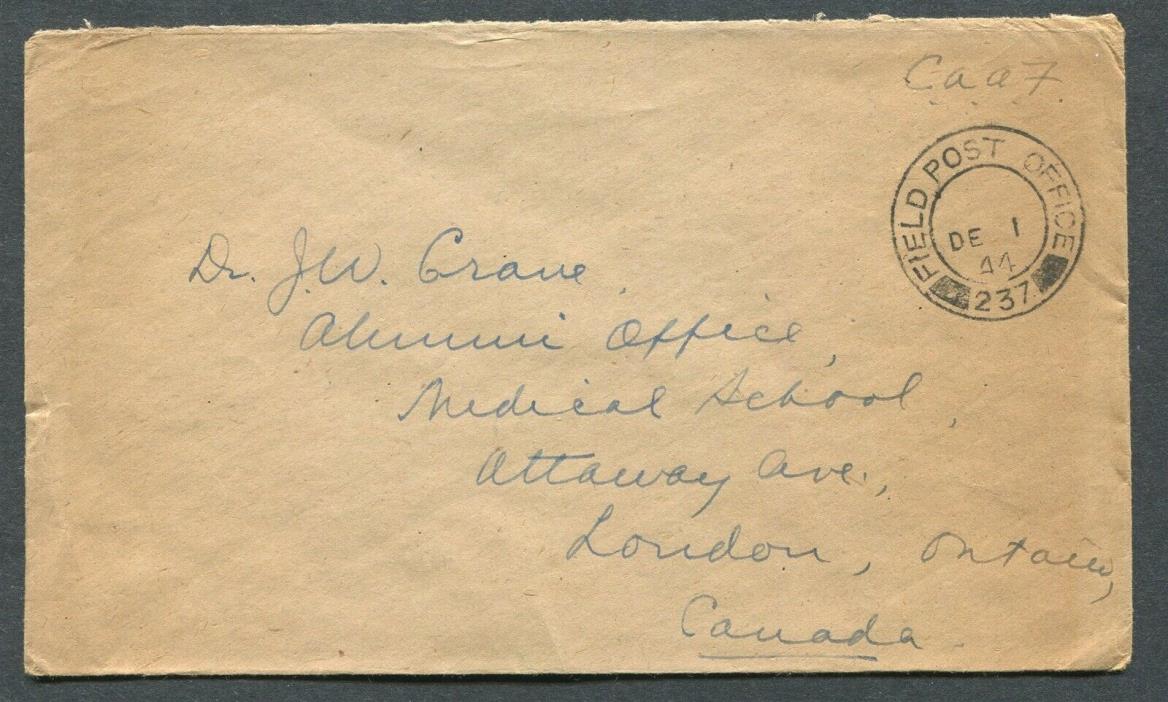 C.a.a.F.
FIELD POST OFFICE
DE 1
44
237
Dr. J.W. Crane,
Alumni Office,
Medical School,
Ottaway Ave.,
London, Ontario,
Canada.